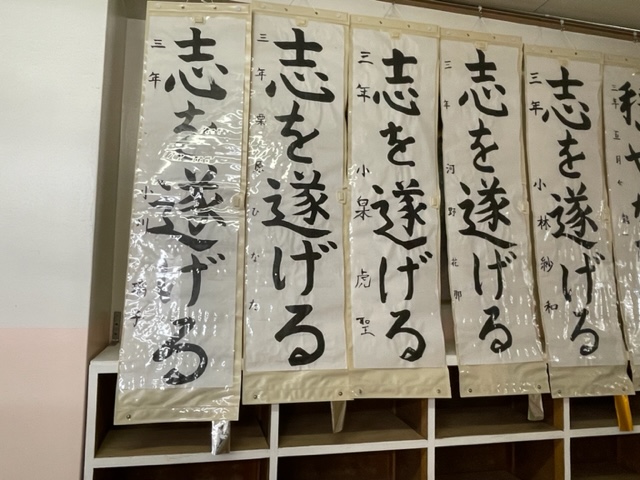 志を遂げる
三年
小川
子
志を遂げる
三年
栗原ひなた
志を遂げる
三年
小泉虎聖
志を遂げる
三年
河野花那
志を遂げる
三年
小林紗和